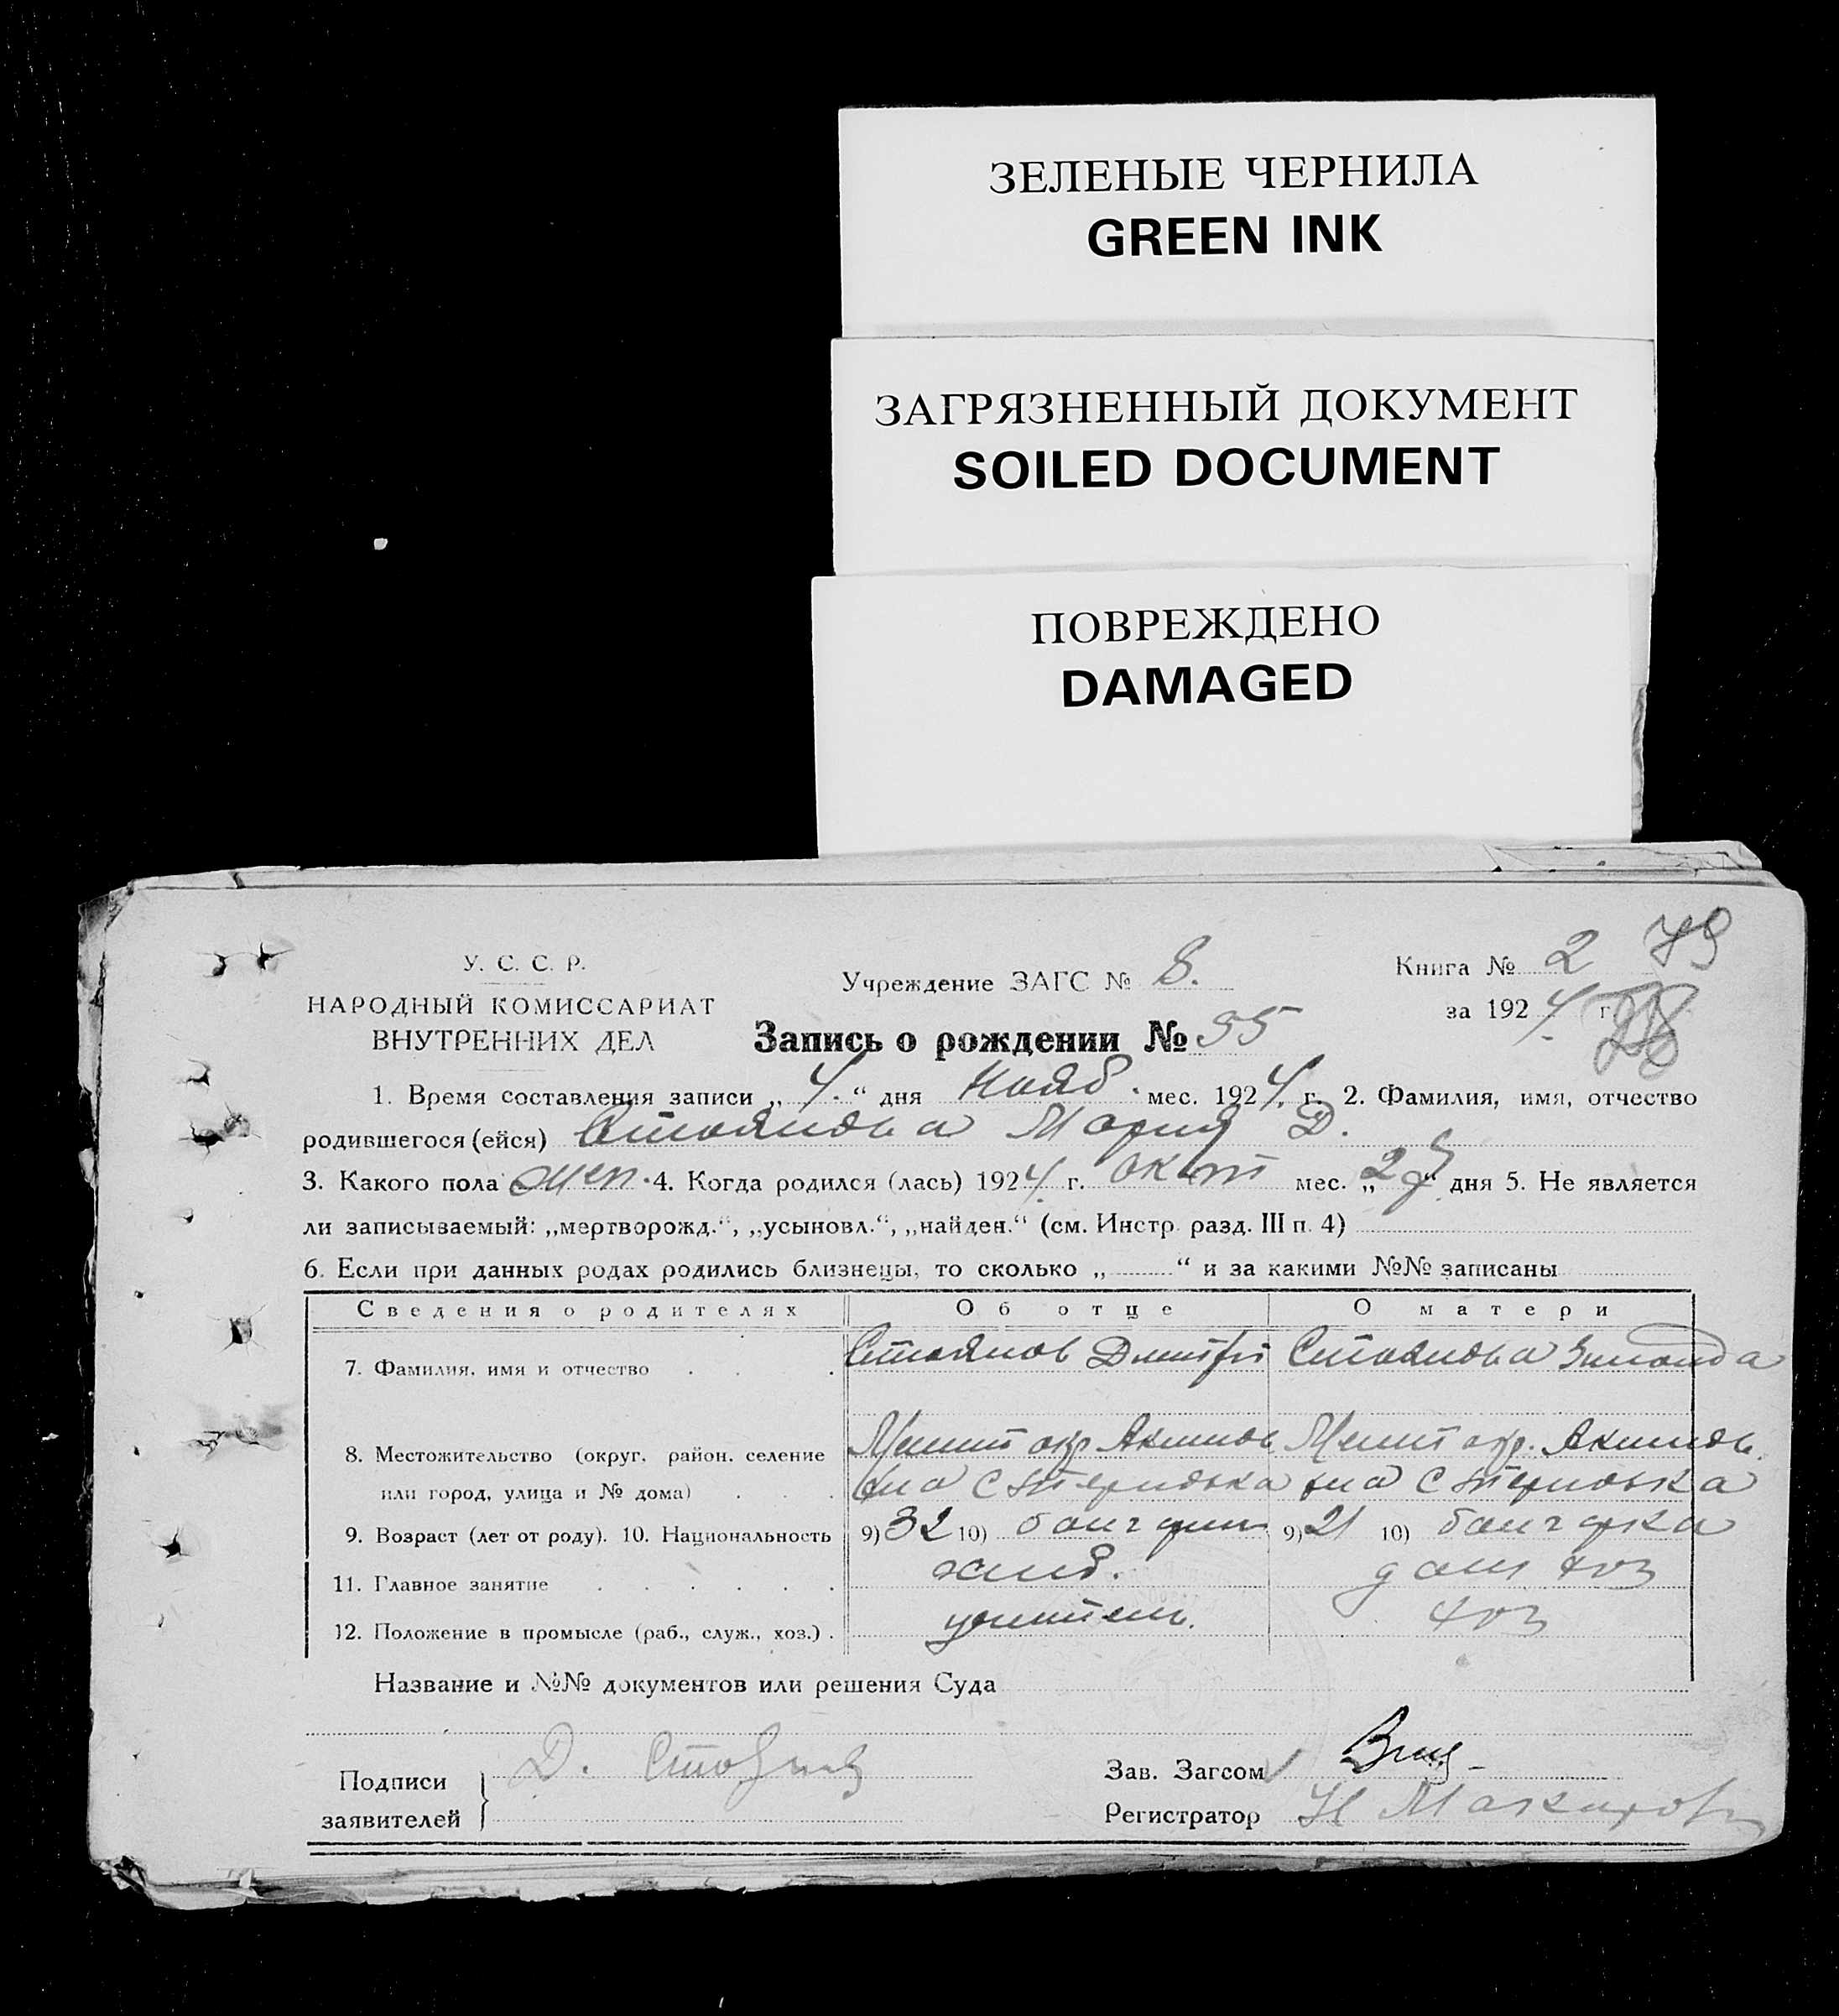 ЗЕЛЕНЫЕ ЧЕРНИЛА
GREEN INK
ЗАГРЯЗНЕННЫЙ ДОКУМЕНТ
SOILED DOCUMENT
ПОВРЕЖДЕНО
DAMAGED
У. С. С. Р.
НАРОДНЫЙ КОМИССАРИАТ
ВНУТРЕННИХ ДЕЛ
Учреждение ЗАГС № 8.
Книга № 2 79
за 1924. г.
Запись о рождении № 55
1. Время составления записи „4.“ дня Нояб. мес. 1924. г. 2. Фамилия, имя, отчество
родившегося (ейся) Стоянова Мария Д.
3. Какого пола жен. 4. Когда родился (лась) 1924. г. окт мес. „29“ дня 5. Не является
ли записываемый: „мертворожд.“, „усыновл.“, „найден.“ (см. Инстр. разд. III п. 4)
6. Если при данных родах родились близнецы, то сколько „ “ и за какими №№ записаны
Сведения о родителях Об отце О матери
7. Фамилия, имя и отчество Стоянов Дмитрі Стоянова Зинаида
8. Местожительство (округ, район, селение Мелит окр Акимов Мелит окр. Акимов.
или город, улица и № дома)
9. Возраст (лет от роду). 10. Национальность 9) 32 10) болгарин 9) 21 10) болгарка
11. Главное занятие дом хоз
12. Положение в промысле (раб., служ., хоз.) учитель. хоз
Название и №№ документов или решения Суда
Подписи заявителей Д. Стоянов
Зав. Загсом
Регистратор